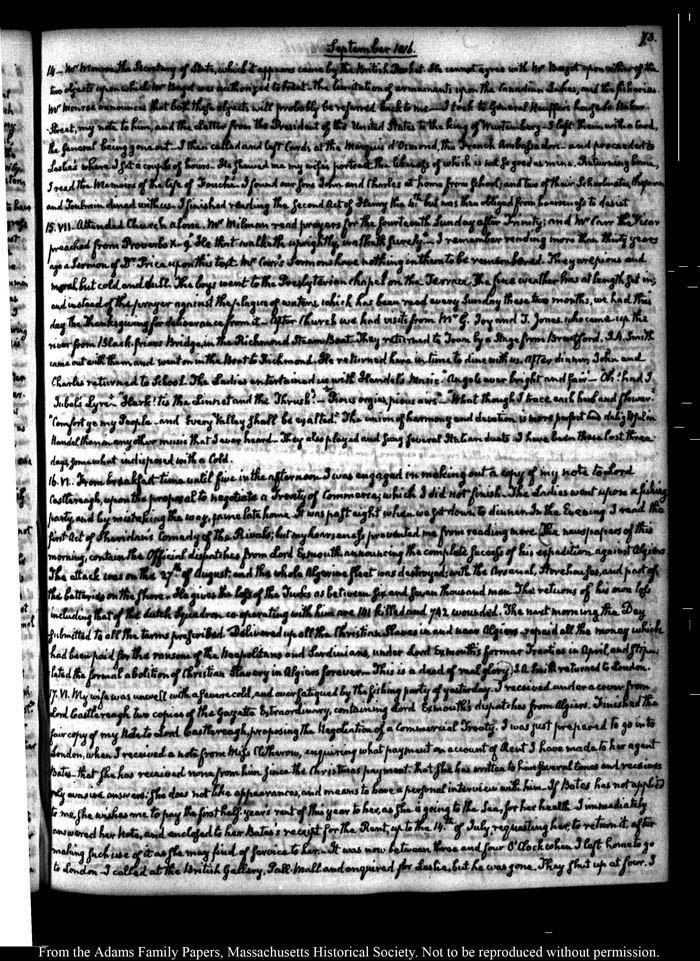 73.
September 1816.
14— Mr Monroe the Secretary of State, which it appears came by the British Packet. He cannot agree with Mr Bagot upon either of the
two objects upon which Mr Bagot was authorized to treat. The limitation of armaments upon the Canadian Lakes, and the fisheries.
Mr Monroe announces that both these objects will probably be referred back to me— I took to General house in Baker
Street, my note to him, and the letter from the President of the United States to the king of Wurtemberg— I left them with a Card,
the General being gone out— I then called and left Cards at the Marquis d'Osmond, the French Ambassador— and proceeded to
Leslie's where I sat a couple of hours. He shewed me my wife's portrait the likeness of which is not so good as mine. Returning home,
I read the Memoirs of the life of Fouché. I found our Sons John and Charles at home from School; and two of their Schoolmates,
and dined with us. I finished reading the Second Act of Henry the 4th but was then obliged from hoarseness to desist
15. VII. Attended Church alone. Mr Milman read prayers for the fourteenth Sunday after Trinity; and Mr Carr the Vicar
preached from Proverbs X. 9. He that walketh uprightly, walketh surely— I remember reading more than thirty years
ago a Sermon of Dr Price upon this text. Mr Carr's Sermons have nothing in them to be remembered. They are pious and
moral but cold and dull. The boys went to the Presbyterian chapel on the Terrace. The fine weather has at length set in;
and instead of the prayer against the plague of waters, which has been read every Sunday these two months, we had this
day the Thanksgiving for deliverance from it— After Church we had visits from Mr G. Joy and T. Jones, who came up the
river from Blackfriars Bridge, in the Richmond Steam Boat. They returned to Town by a Stage from Brentford. J. A. Smith
came out with them and went on in the Boat to Richmond. He returned here in time to dine with us. After dinner, John and
Charles returned to School. The Ladies entertained us with Handel's Music. "Angels ever bright and fair"— "Oh! had I
Jubal's Lyre." "Hark! 'tis the Linnet and the Thrush."— "Pious orgies, pious airs"— "What though I trace each herb and flower."
"Comfort ye my People— and Every Valley shall be exalted." The union of harmony and devotion is more perfect and delightful in
Handel than in any other music that I ever heard— They also played and sung several Italian duets. I have been these last three
days somewhat indisposed with a Cold.
16. VI. From breakfast time until five in the afternoon I was engaged in making out a copy of my note to Lord
Castlereagh, upon the proposal to negotiate a Treaty of Commerce; which I did not finish. The Ladies went upon a fishing
party, and by mistaking the way, came late home. It was past eight when we sat down to dinner. In the Evening I read the
first Act of Sheridan's Comedy of the Rivals; but my hoarseness prevented me from reading more. The newspapers of this
morning, contain the Official dispatches from Lord Exmouth announcing the complete success of his expedition against Algiers.
The attack was on the 27th of August; and the whole Algerine fleet was destroyed; with the Arsenal, Storehouses, and part of
the batteries on the shore. He gives the loss of the Turks as between six and seven thousand men. The returns of his own loss
including that of the dutch Squadron co-operating with him are 141 killed and 742 wounded. The next morning the Dey
submitted to all the terms prescribed. Delivered up all the Christian Slaves in and near Algiers— repaid all the money which
had been paid for the ransoms of the Neapolitans and Sardinians, under Lord Exmouth's former Treaties in April, and stipu-
lated the formal abolition of Christian Slavery in Algiers forever— This is a deed of real glory. J. A. Smith returned to London.
17. VI. My wife was unwell with a severe cold, and over fatigued by the fishing party of yesterday. I received under a cover from
Lord Castlereagh two copies of the Gazette Extraordinary, containing Lord Exmouth's dispatches from Algiers. Finished the
fair copy of my Note to Lord Castlereagh, proposing the Negotiation of a Commercial Treaty. I was just prepared to go into
London, when I received a note from Miss Clitherow, enquiring what payment on account of Rent I have made to her agent
Bates— that she has received none from him since the Christmas payment— that she has written to him several times and receives
only evasive answers; she does not like appearances, and means to have a personal interview with him— If Bates has not applied
to me, she wishes me to pay the first half years rent of this year to her, as she is going to the Sea, for her health— I immediately
answered her Note, and enclosed to her Bates's receipt for the Rent, up to the 14th of July requesting her to return it after
making such use of it as she may find of service to her.— It was now between three and four O'Clock when I left home to go
to London— I called at the British Gallery, Pall-Mall and enquired for Leslie, but he was gone. They shut up at four. I
From the Adams Family Papers, Massachusetts Historical Society. Not to be reproduced without permission.